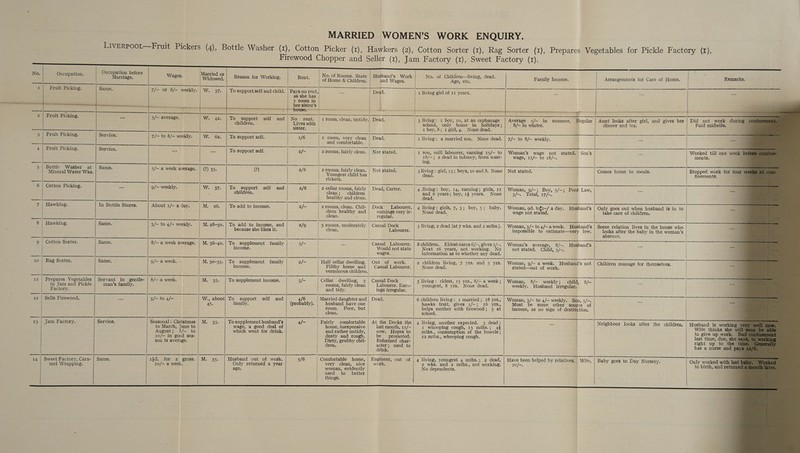 MARRIED WOMEN'S WORK ENQUIRY.
LIVERPOOL—Fruit Pickers (4), Bottle Washer (1), Cotton Picker (1), Hawkers (2), Cotton Sorter (1), Rag Sorter (1), Prepares Vegetables for Pickle Factory (1),
Firewood Chopper and Seller (1), Jam Factory (1), Sweet Factory (1).
No. Occupation. Occupation before Marriage. Wages. Married or Widowed. Reason for Working. Rent. No. of Rooms. State of Home & Children. Husband's Work and Wages. No. of Children—living, dead. Age, etc. Family Income. Arrangements for Care of Home. Remarks.
1 Fruit Picking. Same. 7/- or 8/- weekly. W. 37. To support self and child. Pays no rent, as she has 1 room in her sister's house. — Dead. 1 living girl of 11 years. — — —
2 Fruit Picking. — 5/- average. W. 42. To support self and children. No rent. Lives with sister. 1 room, clean, untidy. Dead. 3 living: 1 boy, 10, at an orphanage school, only home in holidays; 1 boy, 8; 1 girl, 4. None dead. Average 5/- in summer, 8/- in winter. Regular Aunt looks after girl, and gives her dinner and tea. Did not work during confinement. Paid midwife.
3 Fruit Picking. Service. 7/- to 8/- weekly. W. 62. To support self. 1/6 1 room, very clean and comfortable. Dead. 1 living: a married son. None dead. 7/- to 8/- weekly. — —
4 Fruit Picking. Service. — — To support self. 4/- 2 rooms, fairly clean. Not stated. 1 son, mill labourer, earning 15/- to 18/-; 2 dead in infancy, from wasting. Woman's wage not stated. Son's wage, 15/- to 18/-. — Worked till one week before confinements.
5 Bottle Washer at Mineral Water Wks. Same. 5/- a week average. (?) 33. (?) 2/6 2 rooms, fairly clean. Youngest child has rickets. Not stated. 3 living: girl, 13; boys, 10 and 8. None dead. Not stated. Comes home to meals. Stopped work for four weeks at confinements.
6 Cotton Picking. — 9/- weekly. W. 37. To support self and children. 2/6 2 cellar rooms, fairly clean; children healthy and clean. Dead, Carter. 4 living: boy, 14, earning; girls, 11 and 6 years; boy, 1½ years. None dead. Woman, 9/-; Boy, 5/-; Poor Law, 3/-. Total, 17/-. — —
7 Hawking. In Bottle Stores. About 1/- a day. M. 26. To add to income. 2/- 2 rooms, clean. Children healthy and clean. Dock Labourer, earnings very irregular. 4 living: girls, 7, 3; boy, 5; baby. None dead. Woman, 9d. to 1/- a day. Husband's wage not stated. Only goes out when husband is in to take care of children. —
8 Hawking. Same. 3/- to 4/- weekly. M. 28-30. To add to income, and because she likes it. 2/9 3 rooms, moderately clean. Casual Dock Labourer. 5 living, 2 dead (at 7 wks. and 2 mths.). Woman, 3/- to 4/- a week. Husband's impossible to estimate—very low. Some relation lives in the house who looks after the baby in the woman's absence. —
9 Cotton Sorter. Same. 8/- a week average. M. 36-40. To supplement family income. 5/- — Casual Labourer. Would not state wages. 8 children. Eldest earns 6/-, gives 5/-. Next 16 years, not working. No information as to whether any dead. Woman's average, 8/-. Husband's not stated. Child, 5/-. — —
10 Rag Sorter. Same. 9/- a week. M. 30-35. To supplement family income. 2/- Half cellar dwelling. Filthy home and verminous children. Out of work. Casual Labourer. 2 children living, 7 yrs. and 5 yrs. None dead. Woman, 9/- a week. Husband's not stated—out of work. Children manage for themselves. —
11 Prepares Vegetables in Jam and Pickle Factory. Servant in gentleman's family. 8/- a week. M. 35. To supplement income. 3/- Cellar dwelling, 2 rooms, fairly clean and tidy. Casual Dock Labourer. Earnings irregular. 5 living: eldest, 15 yrs., 6/- a week; youngest, 8 yrs. None dead. Woman, 8/- weekly; child, 6/- weekly. Husband irregular. — —
12 Sells Firewood. — 3/- to 4/- W., about 47. To support self and family. 4/6 (probably). Married daughter and husband have one room. Poor, but clean. Dead. 6 children living: 1 married; 18 yrs., hawks fruit, gives 5/-; 16 yrs., helps mother with firewood; 3 at school. Woman, 3/- to 4/- weekly. Son, 5/-. Must be some other source of income, as no sign of destitution. — —
13 Jam Factory. Service. Seasonal: Christmas to March, June to August; 7/- to 10/- in good season is average. M. 33. To supplement husband's wage, a good deal of which went for drink. 4/- Fairly comfortable home, inexpensive and rather untidy, dusty and rough. Dirty, grubby children. At the Docks the last month, 15/- now. Hopes to be promoted. Reformed character; used to drink. 4 living, another expected, 3 dead; 1 whooping cough, 15 mths.; 2½ mths., consumption of the bowels; 12 mths., whooping cough. — Neighbour looks after the children. Husband is working very well now. Wife thinks she will soon be able to give up work. Bad confinement last time, due, she said, to working right up to the time. Generally has a nurse and pays 12/6.
14 Sweet Factory, Caramel Wrapping. Same. 1½d. for a gross. 10/- a week. M. 35. Husband out of work. Only returned a year ago. 5/6 Comfortable home, very clean, nice woman, evidently used to better things. Engineer, out of work. 4 living, youngest 4 mths.; 2 dead, 2 wks. and 2 mths., not working. No dependents. Have been helped by relatives. Wife, 10/-. Baby goes to Day Nursery. Only worked with last baby. Worked to birth, and returned a month later.